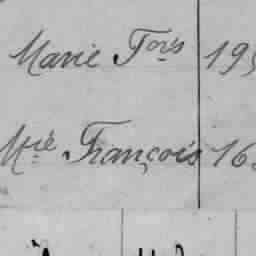 Marie Fois 195
Mie François 16